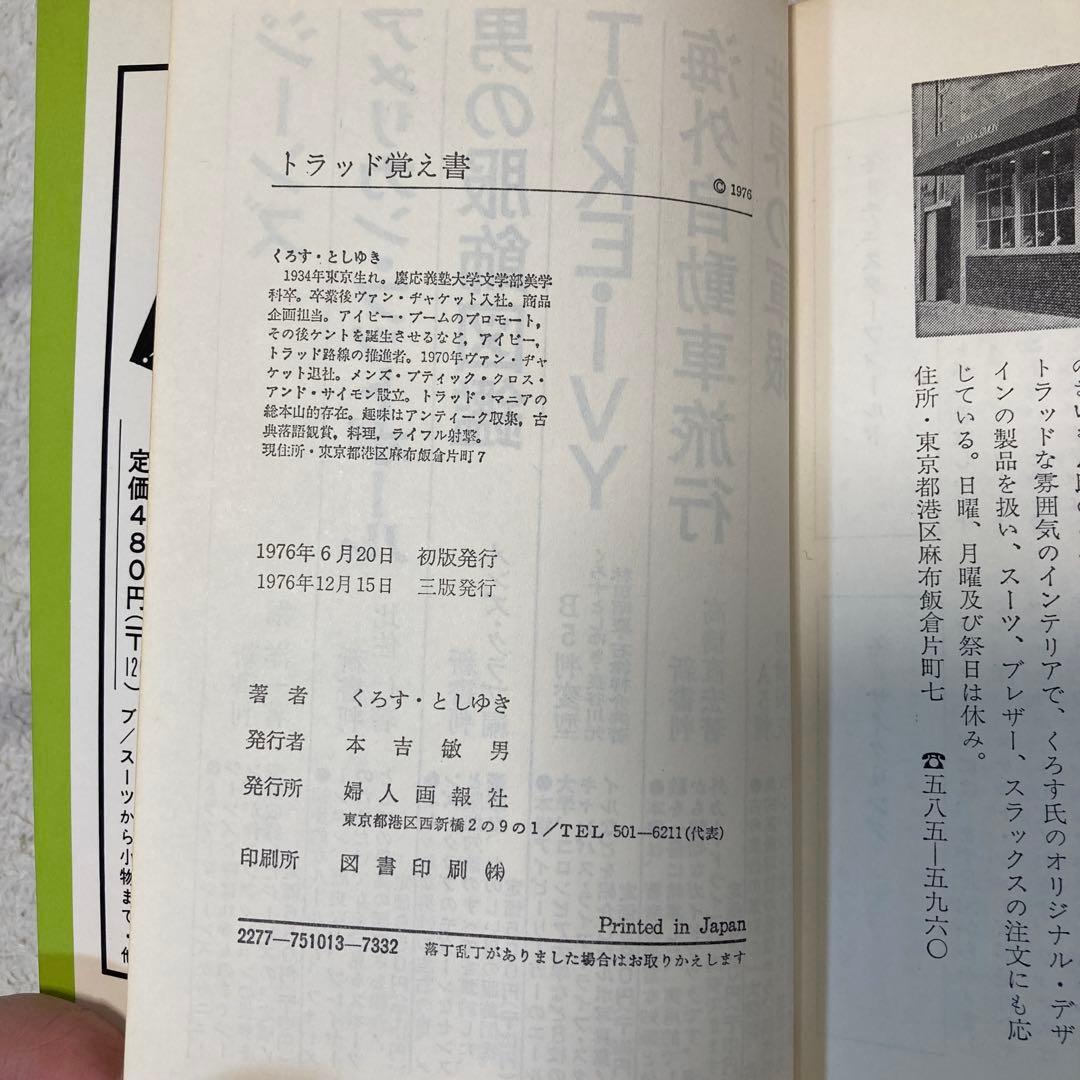 トラッド覚え書
© 1976
くろす・としゆき
1934年東京生れ。慶応義塾大学文学部美学
科卒。卒業後ヴァン・ヂャケット入社。商品
企画担当。アイビー・ブームのプロモート,
その後ケントを誕生させるなど,アイビー,
トラッド路線の推進者。1970年ヴァン・ヂャ
ケット退社。メンズ・ブティック・クロス・
アンド・サイモン設立。トラッド・マニアの
総本山的存在。趣味はアンティーク収集,古
典落語観賞,料理,ライフル射撃。
現住所・東京都港区麻布飯倉片町7
1976年6月20日 初版発行
1976年12月15日 三版発行
著者 くろす・としゆき
発行者 本吉敏男
発行所 婦人画報社
東京都港区西新橋2の9の1/TEL 501—6211(代表)
印刷所 図書印刷㈱
Printed in Japan
2277—751013—7332
落丁乱丁がありました場合はお取りかえします
トラッドな雰囲気のインテリアで、くろす氏のオリジナル・デザ
インの製品を扱い、スーツ、ブレザー、スラックスの注文にも応
じている。日曜、月曜及び祭日は休み。
住所・東京都港区麻布飯倉片町七 ☎五八五—五九六〇
定価480円(〒12
ブ/スーツから小物まで・